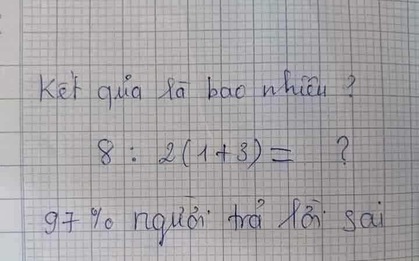 Kết quả là bao nhiêu ?
8 : 2(1+3) = ?
97% người trả lời sai